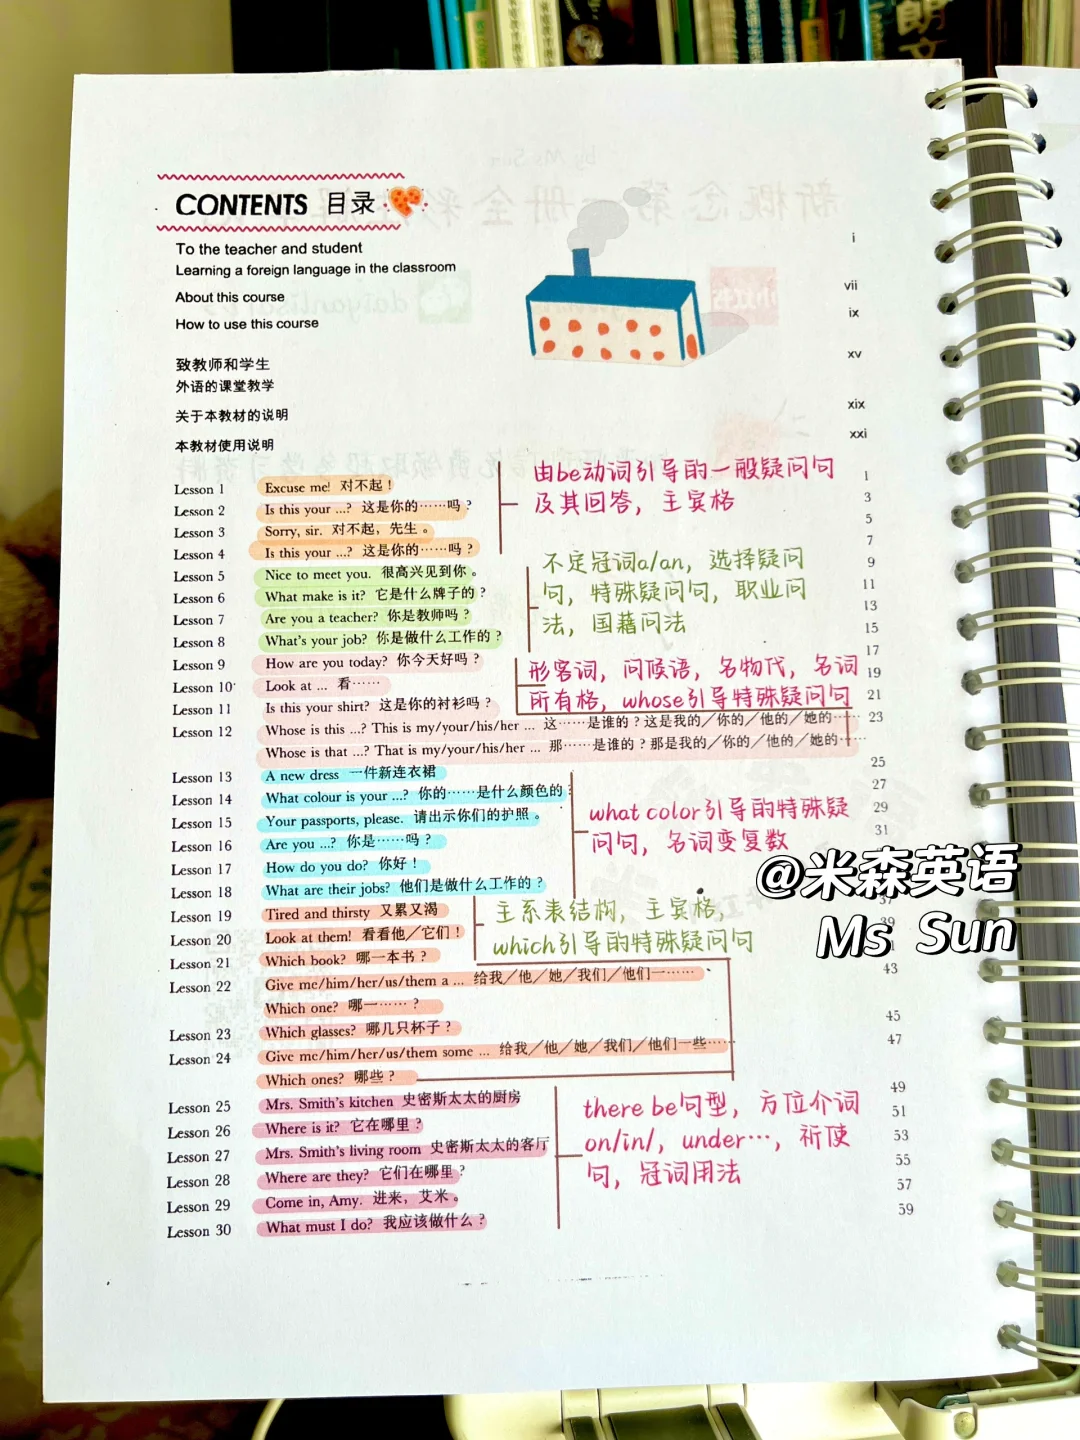 朗文
CONTENTS 目录
To the teacher and student i
Learning a foreign language in the classroom
About this course vii
How to use this course ix
致教师和学生 xv
外语的课堂教学
关于本教材的说明 xix
本教材使用说明 xxi
Lesson 1 Excuse me! 对不起! 1
Lesson 2 Is this your ...? 这是你的……吗? 3
Lesson 3 Sorry, sir. 对不起,先生。 5
Lesson 4 Is this your ...? 这是你的……吗? 7
由be动词引导的一般疑问句
及其回答,主宾格
Lesson 5 Nice to meet you. 很高兴见到你。 9
Lesson 6 What make is it? 它是什么牌子的? 11
Lesson 7 Are you a teacher? 你是教师吗? 13
Lesson 8 What's your job? 你是做什么工作的? 15
不定冠词a/an,选择疑问
句,特殊疑问句,职业问
法,国籍问法
Lesson 9 How are you today? 你今天好吗? 17
Lesson 10 Look at ... 看…… 19
Lesson 11 Is this your shirt? 这是你的衬衫吗? 21
Lesson 12 Whose is this ...? This is my/your/his/her ... 这……是谁的?这是我的/你的/他的/她的…… 23
Whose is that ...? That is my/your/his/her ... 那……是谁的?那是我的/你的/他的/她的……
形容词,问候语,名物代,名词
所有格,whose引导特殊疑问句
Lesson 13 A new dress 一件新连衣裙 25
Lesson 14 What colour is your ...? 你的……是什么颜色的? 27
Lesson 15 Your passports, please. 请出示你们的护照。 29
Lesson 16 Are you ...? 你是……吗? 31
Lesson 17 How do you do? 你好!
Lesson 18 What are their jobs? 他们是做什么工作的?
what color引导的特殊疑
问句,名词变复数
@米森英语
Ms Sun
Lesson 19 Tired and thirsty 又累又渴 37
Lesson 20 Look at them! 看看他/它们! 39
Lesson 21 Which book? 哪一本书?
Lesson 22 Give me/him/her/us/them a ... 给我/他/她/我们/他们一…… 43
Which one? 哪一……?
Lesson 23 Which glasses? 哪几只杯子? 45
Lesson 24 Give me/him/her/us/them some ... 给我/他/她/我们/他们一些…… 47
Which ones? 哪些?
主系表结构,主宾格,
which引导的特殊疑问句
Lesson 25 Mrs. Smith's kitchen 史密斯太太的厨房 49
Lesson 26 Where is it? 它在哪里? 51
Lesson 27 Mrs. Smith's living room 史密斯太太的客厅 53
Lesson 28 Where are they? 它们在哪里? 55
Lesson 29 Come in, Amy. 进来,艾米。 57
Lesson 30 What must I do? 我应该做什么? 59
there be句型,方位介词
on/in/,under…,祈使
句,冠词用法